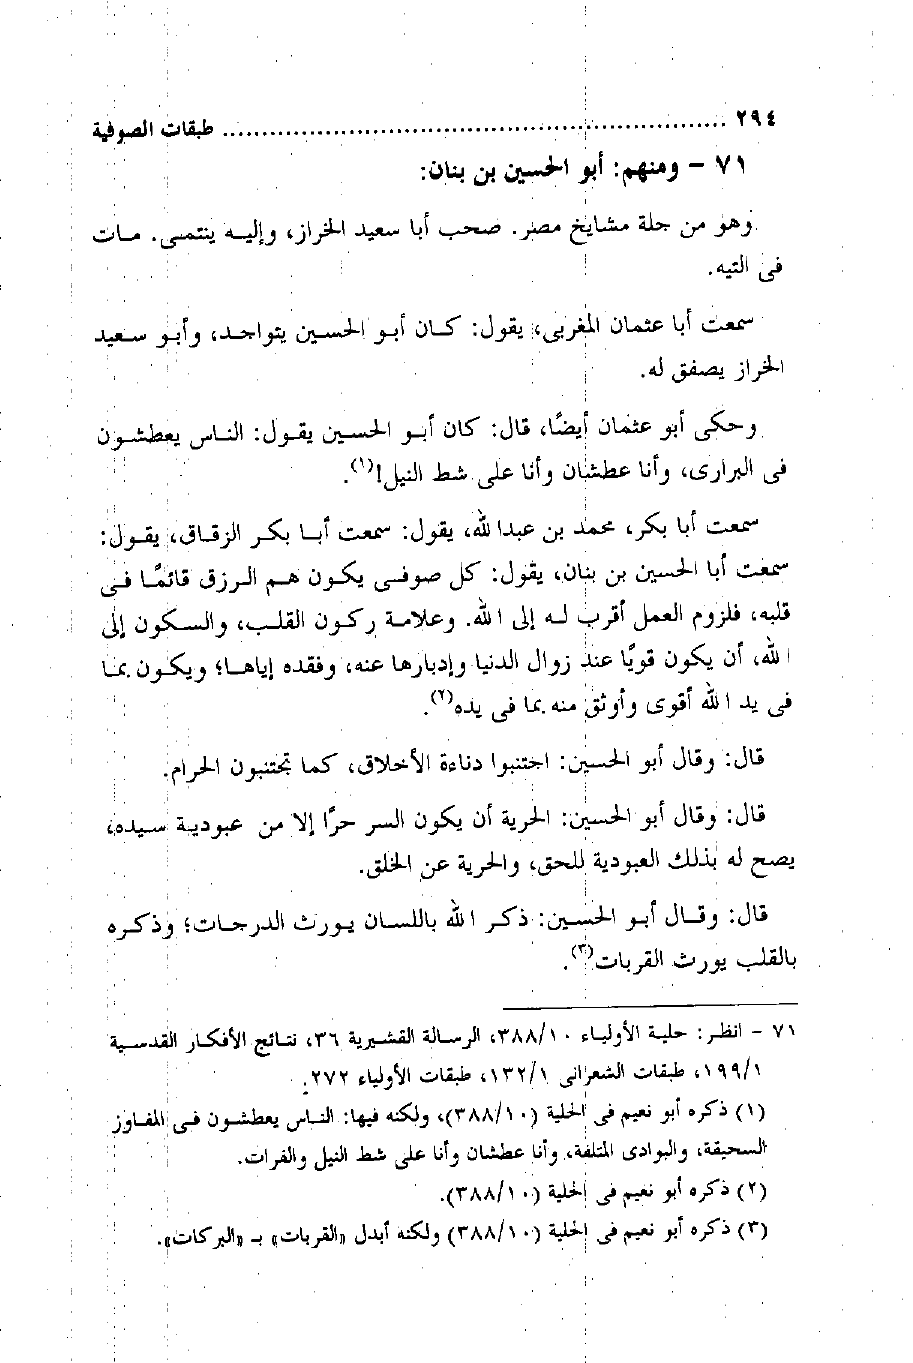 ٢٩٤ ........................................ طبقات الصوفية
٧١ - ومنهم: أبو الحسين بن بنان:
وهو من جلة مشايخ مصر. صحب أبا سعيد الخراز، وإليه ينتمى. مات
فى التيه.
سمعت أبا عثمان المغربى، يقول: كان أبو الحسين يتواجد، وأبو سعيد
الخراز يصفق له.
وحكى أبو عثمان أيضًا، قال: كان أبو الحسين يقول: الناس يعطشون
فى البرارى، وأنا عطشان وأنا على شط النيل!(١).
سمعت أبا بكر، محمد بن عبدالله، يقول: سمعت أبا بكر الزقاق، يقول:
سمعت أبا الحسين بن بنان، يقول: كل صوفى يكون هم الرزق قائمًا فى
قلبه، فلزوم العمل أقرب له إلى الله. وعلامة ركون القلب، والسكون إلى
الله، أن يكون قويًا عند زوال الدنيا وإدبارها عنه، وفقده إياها؛ ويكون بما
فى يد الله أقوى وأوثق منه بما فى يده(٢).
قال: وقال أبو الحسين: اجتنبوا دناءة الأخلاق، كما تجتنبون الحرام.
قال: وقال أبو الحسين: الحرية أن يكون السر حرًا إلا من عبودية سيده،
يصح له بذلك العبودية للحق، والحرية عن الخلق.
قال: وقال أبو الحسين: ذكر الله باللسان يورث الدرجات؛ وذكره
بالقلب يورث القربات(٣).
٧١ - انظر: حلية الأولياء ٣٨٨/١٠، الرسالة القشيرية ٣٦، نتائج الأفكار القدسية
١٩٩/١، طبقات الشعرانى ١٣٢/١، طبقات الأولياء ٢٧٢.
(١) ذكره أبو نعيم فى الحلية (٣٨٨/١٠)، ولكنه فيها: الناس يعطشون فى المفاوز
السحيقة، والبوادى المتلفة، وأنا عطشان وأنا على شط النيل والفرات.
(٢) ذكره أبو نعيم فى الحلية (٣٨٨/١٠).
(٣) ذكره أبو نعيم فى الحلية (٣٨٨/١٠) ولكنه أبدل «القربات» بـ «البركات».